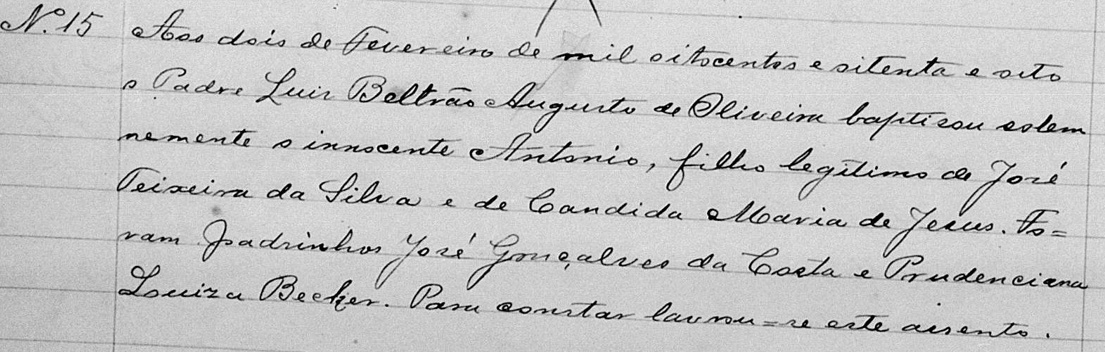 Nº.15 Aos dois de Fevereiro de mil oitocentos e sitenta e oito
o Padre Luis Beltrão Augusto de Oliveira baptisou solem
nemente o innocente Antonio, filho legitimo de José
Teixeira da Silva e de Candida Maria de Jesus. Fo=
ram padrinhos José Gonçalves da Costa e Prudenciana
Louiza Becker. Para constar lavrou=se este assento.